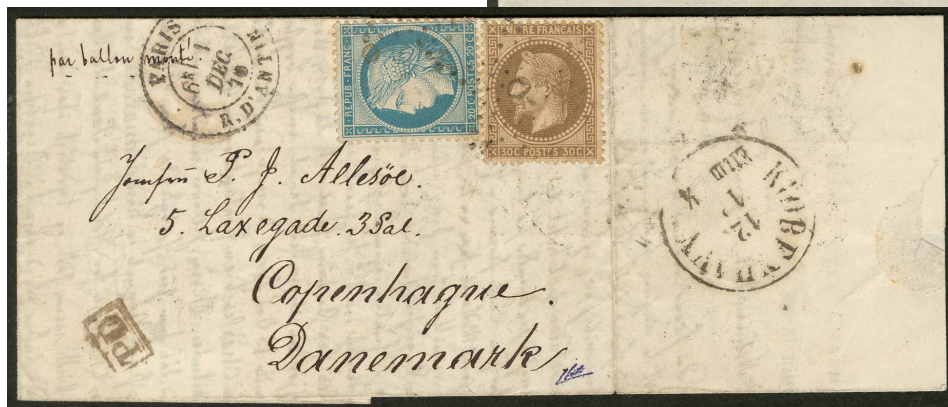 par ballon monté
PARIS
DEC.
70
R. D'ANTIN
REPUB. FRANC.
20 C. POSTES. 20 C
EMPIRE FRANÇAIS
30C POSTES 30C
P. J. Allesöe.
5. Laxegade. 3 Sal.
Copenhague.
Danemark
PD
KIØBENHAVN
12
1